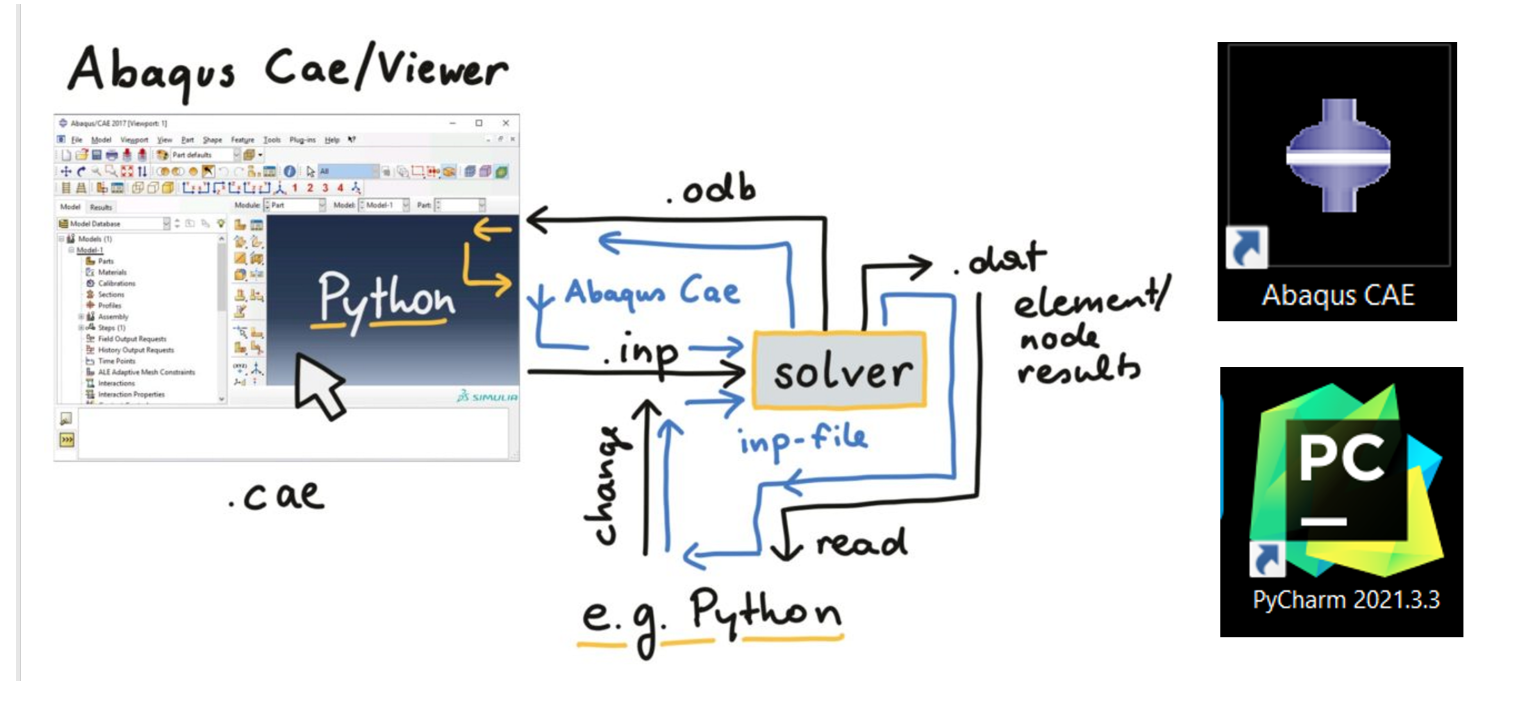 Abaqus Cae/Viewer
Abaqus/CAE 2017 [Viewport: 1]
File Model Viewport View Part Shape Feature Tools Plug-ins Help
Part defaults
All
1 2 3 4
Model Results
Module: Part Model: Model-1 Part:
Model Database
Models (1)
Model-1
Parts
Materials
Calibrations
Sections
Profiles
Assembly
Steps (1)
Field Output Requests
History Output Requests
Time Points
ALE Adaptive Mesh Constraints
Interactions
Interaction Properties
Python
SIMULIA
>>>
.cae
.odb
Abaqus Cae
.inp
solver
inp-file
.dat
element/
node
results
change
read
e.g. Python
Abaqus CAE
PC
PyCharm 2021.3.3